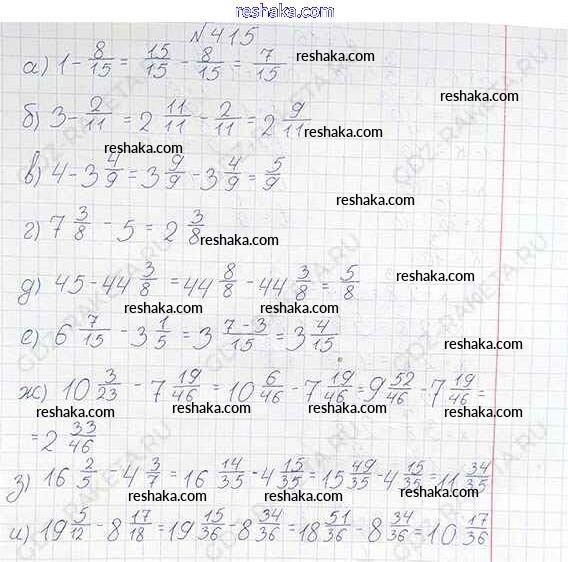 reshaka.com
№415
а) 1 - 8/15 = 15/15 - 8/15 = 7/15
reshaka.com reshaka.com
б) 3 - 2/11 = 2 11/11 - 2/11 = 2 9/11
reshaka.com reshaka.com
в) 4 - 3 4/9 = 3 9/9 - 3 4/9 = 5/9
reshaka.com reshaka.com
г) 7 3/8 - 5 = 2 3/8
reshaka.com
reshaka.com
д) 45 - 44 3/8 = 44 8/8 - 44 3/8 = 5/8
reshaka.com
reshaka.com reshaka.com
е) 6 7/15 - 3 1/5 = 3 (7-3)/15 = 3 4/15
reshaka.com reshaka.com
ж) 10 3/23 - 7 19/46 = 10 6/46 - 7 19/46 = 9 52/46 - 7 19/46 =
reshaka.com reshaka.com reshaka.com
= 2 33/46
reshaka.com
з) 16 2/5 - 4 3/7 = 16 14/35 - 4 15/35 = 15 49/35 - 4 15/35 = 11 34/35
reshaka.com reshaka.com reshaka.com
и) 19 5/12 - 8 17/18 = 19 15/36 - 8 34/36 = 18 51/36 - 8 34/36 = 10 17/36
reshaka.com reshaka.com reshaka.com
GDZ-RAKETA.RU